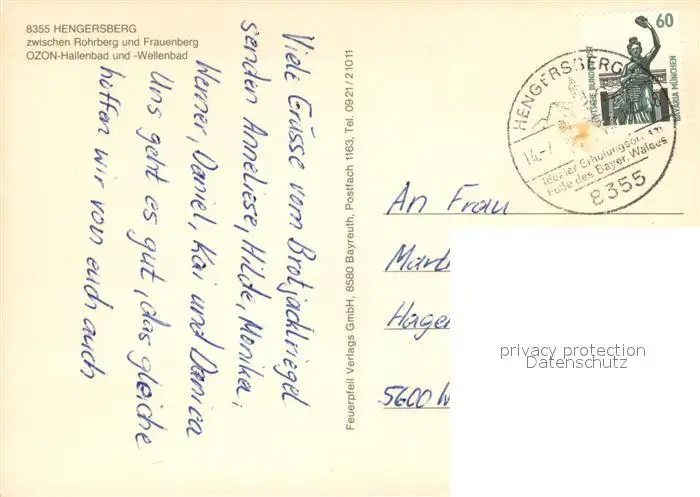 8355 HENGERSBERG
zwischen Rohrberg und Frauenberg
OZON-Hallenbad und -Wellenbad
Viele Grüsse vom Brotjacklriegel
senden Anneliese, Hilde, Monika,
Werner, Daniel, Kai und Danica
Uns geht es gut, das gleiche
hoffen wir von euch auch
Feuerpfeil Verlags GmbH, 8580 Bayreuth, Postfach 1163, Tel. 0921/21011
60
DEUTSCHE BUNDESPOST
BAVARIA MÜNCHEN
HENGERSBERG
14.-7
Idealer Erholungsort am
Fuße des Bayer. Waldes
8355
An Frau
Hagen
5600 W
privacy protection
Datenschutz